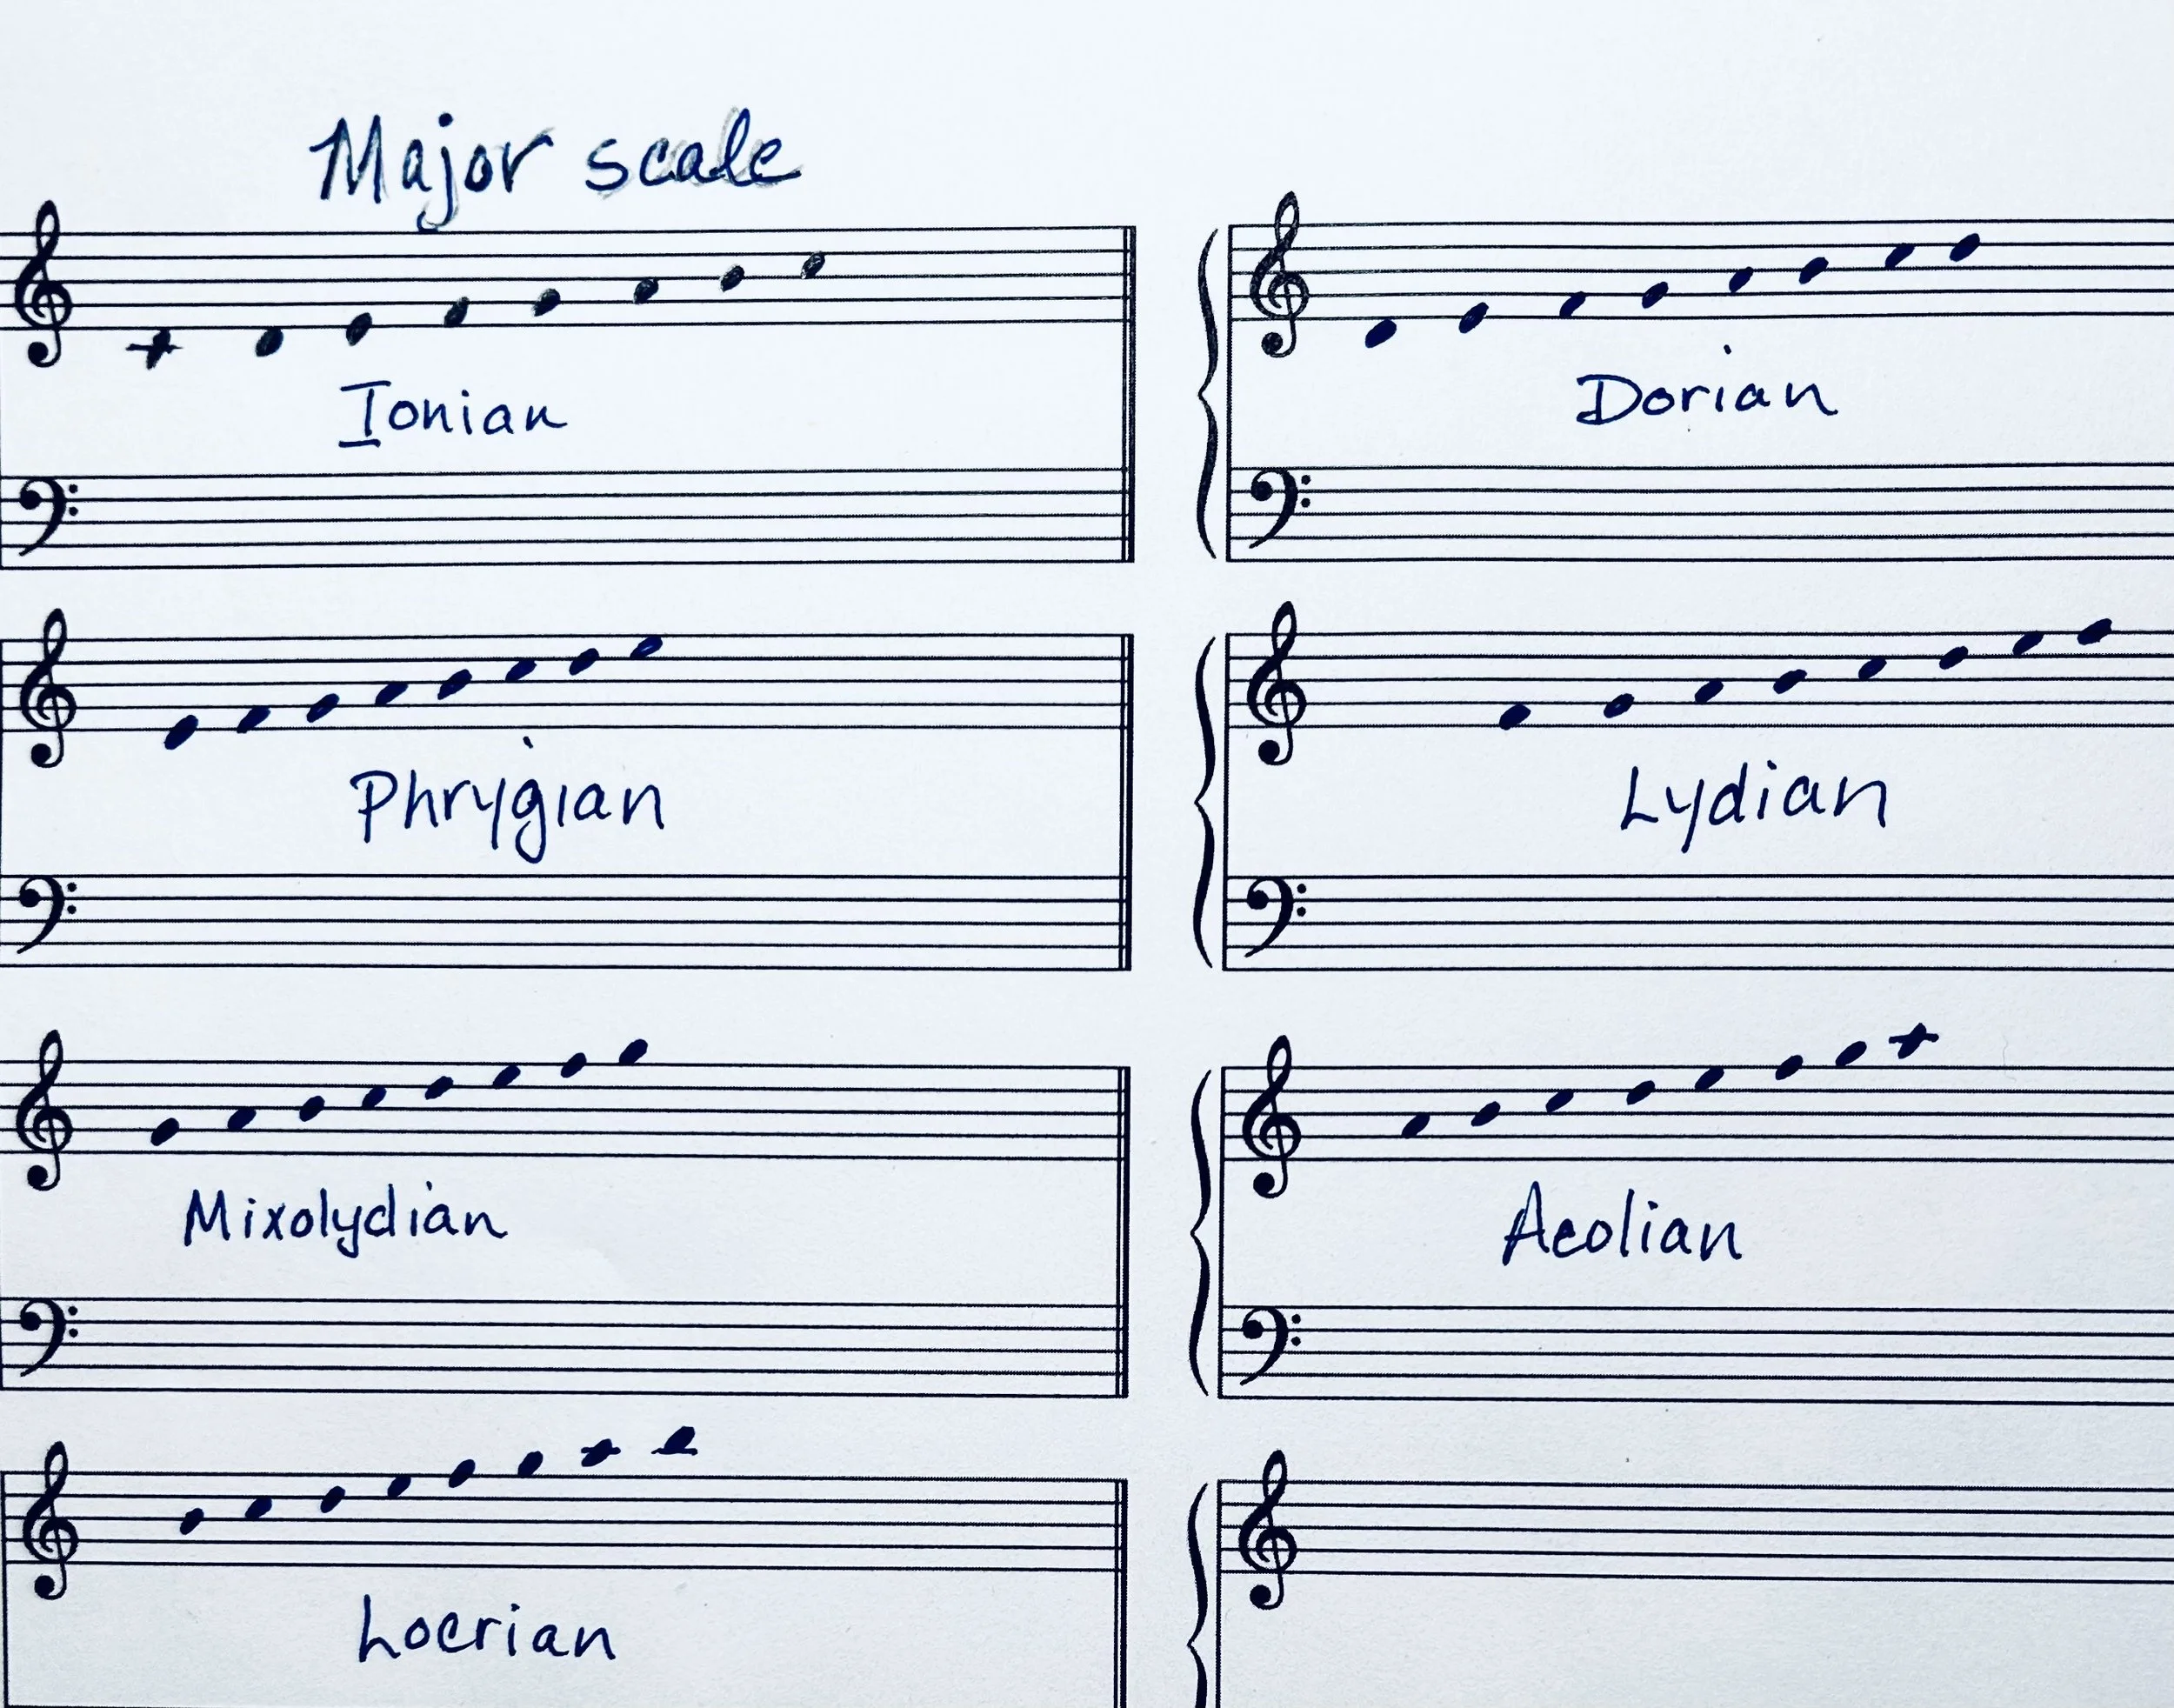 Major scale
Ionian
Dorian
Phrygian
Lydian
Mixolydian
Aeolian
Locrian